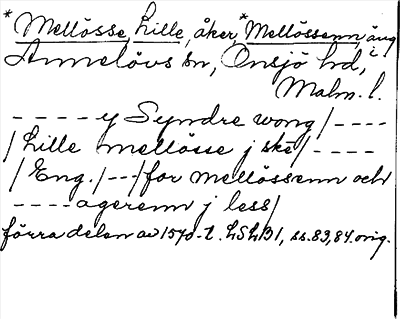 *Mellösse, Lille, åker, *Mellössenn, äng i
Annelövs sn, Onsjö hd,
Malm. l.
-----y Syndre wong/----
/Lille mellösse j ske/----
/Eng./---/for mellössenn och
----agerenn j less/
förra delen av 1570-t. LSLB1, ss. 83, 84. orig.